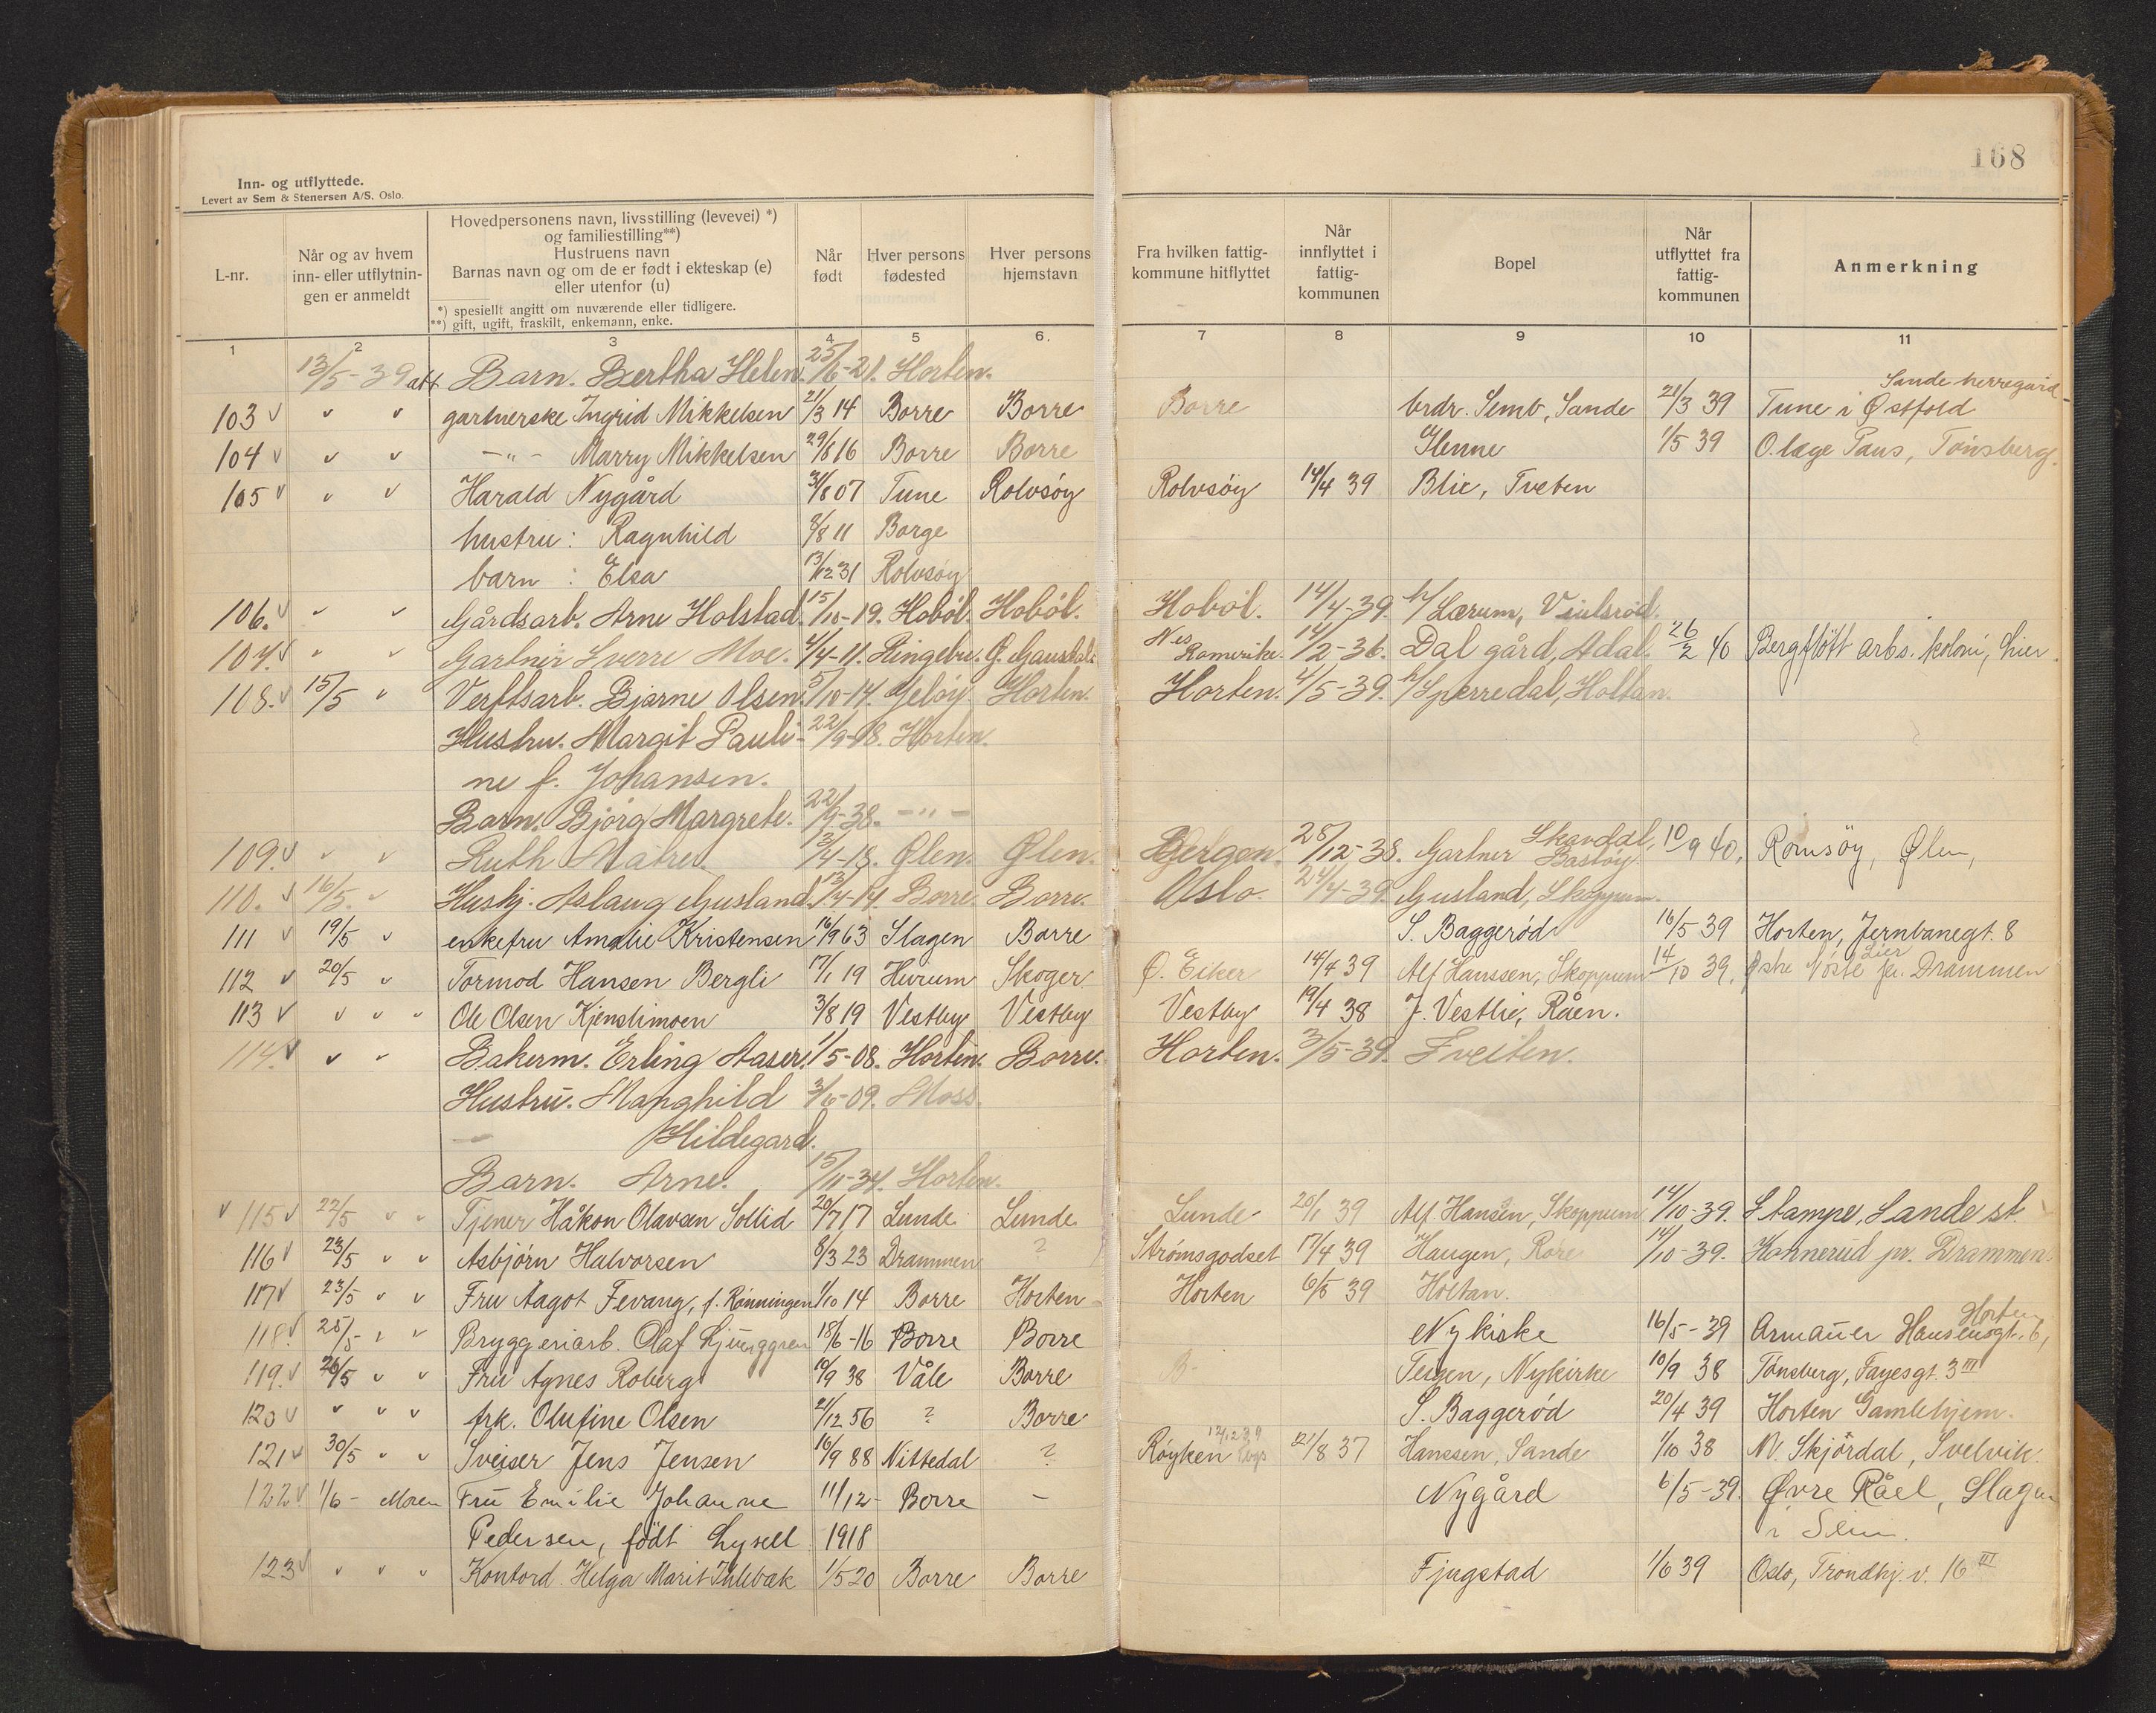 168
Inn- og utflyttede.
Levert av Sem & Stenersen A/S. Oslo.
L-nr. | Når og av hvem inn- eller utflytningen er anmeldt | Hovedpersonens navn, livsstilling (levevei) *) og familiestilling**) Hustruens navn Barnas navn og om de er født i ekteskap (e) eller utenfor (u) *) spesiellt angitt om nuværende eller tidligere. **) gift, ugift, fraskilt, enkemann, enke. | Når født | Hver persons fødested | Hver persons hjemstavn | Fra hvilken fattigkommune hitflyttet | Når innflyttet i fattigkommunen | Bopel | Når utflyttet fra fattigkommunen | Anmerkning
1 2 3 4 5 6. 7 8 9 10 11
13/5-39 att Barn. Bertha Helen. 25/6-21. Horten.
103 " " gartnerske Ingrid Mikkelsen 21/3 14 Borre Borre Borre brdr. Semb, Sande 21/3 39 Tune i Østfold Sande herregård
104 " " -"- Marry Mikkelsen 29/8 16 Borre Borre Glenne 1/5 39 O.læge Paus, Tönsberg.
105 " " Harald Nygård 31/8 07 Tune Rolvsöy Rolvsöy 14/4 39 Blie, Tveten
hustru: Ragnhild 8/8 11 Borge
barn : Elsa 13/12 31 Rolvsöy
106. " " Gårdsarb. Arne Holstad. 15/10-19. Hoböl. Hoböl. Hoböl. 14/4-39. h/Lærum, Viulsröd.
107. " " Gartner Sverre Moe. 4/4-11. Ringebu. Ö. Gausdal. Nes Romerike. 14/2-36. Dal gård, Adal. 26/2 40 Bergflött arbs. koloni, Lier
108. 15/5 " Verftsarb. Bjarne Olsen. 5/10-14. Jelöy. Horten. Horten. 4/5-39. h/Sperredal, Holtan.
Hustru. Margit Pauli- 22/9-18. Horten.
ne f. Johansen.
Barn. Björg Margrete. 22/9-38. -"-
109. " " Ruth Matre. 13/4-18. Ølen. Ølen. Bergen. 28/12-38. Gartner Skavdal, Bastöy 10/9 40. Romsöy, Ølen,
110. 16/5. " Hushj. Aslaug Gusland. 13/4-14. Borre. Borre. Oslo. 24/4-39. Gusland, Skoppum.
111 19/5 " enkefru Amalie Kristensen 16/9 63 Slagen Borre S. Baggerød 16/5 39 Horten, Jernbanegt. 8
112 20/5 " Tormod Hansen Bergli 17/1 19 Hurum Skoger Ö. Eiker 14/4 39 Alf Hanssen, Skoppum 14/10 39. Lier pr. Drammen
113 " " " Ole Olsen Kjenslimoen 3/8 19 Vestby Vestby Vestby 19/4 38 J. Vestlie, Råen.
114. " " Bakerm. Erling Aaser. 1/5-08. Horten. Borre. Horten. 3/5-39. Tveiten.
Hustru. Manghild 3/6-09. Moss.
— Hildegard.
Barn. Arne. 15/11-34. Horten.
115 22/5 " " Tjener Håkon Olavsen Sollid 20/7 17 Lunde Lunde Lunde 20/1 39 Alf. Hansen, Skoppum 14/10-39. Stampe, Sande st.
116 23/5 " " Asbjörn Halvorsen 8/3 23 Drammen ? Strömsgodset 17/4 39 Haugen, Röre 14/10-39. Konnerud pr. Drammen.
117 23/5 " " Fru Aagot Fevang, f. Rønningen 1/10 14 Borre Horten Horten 6/5 39 Holtan.
118. 25/5 " " Bryggeriarb. Olaf Ljunggren 18/6-16 Borre Borre Nykirke 16/5-39 Armauer Hansensgt. 6, Horten
119. 26/5 " " Fru Agnes Roberg 19/9 38 Våle Borre B- Teigen, Nykirke 10/9 38 Tönsberg, Fayesgt. 3 III
120 " " " frk. Olufine Olsen 21/12 56 ? Borre S. Baggerød 20/4 39 Horten Gamlehjem.
121 30/5 " " Sveiser Jens Jensen 16/9 88 Nittedal ? Röyken 21/8 37 Hanssen, Sande 1/10 38 N. Skjördal, Svelvik.
122. 1/6 - Moren Fru Emilie Johanne 11/12- Borre - Nygård 6/5-39. Øvre Råel, Slagen
Pedersen, födt Lysell 1918 i Sem.
123 " " " Kontord. Helga Marit Julebak 1/5 20 Borre Borre Fjugstad 1/6 39 Oslo, Trondhj.v. 16 III